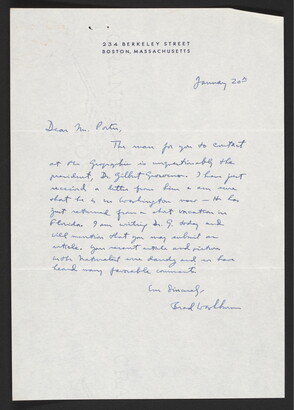 234 BERKELEY STREET
BOSTON, MASSACHUSETTS
January 20
Dear Mr. Porter,
The man for you to contact
at the Geographic is unquestionably the
president, Dr. Gilbert Grosvenor. I have just
received a letter from him & am sure
that he is in Washington now – He has
just returned from a short vacation in
Florida. I am writing Dr. G. today and
will mention that you may submit an
article. Your recent article and pictures
in the Naturalist were dandy and we have
heard many favorable comments
Sincerely,
Brad Washburn